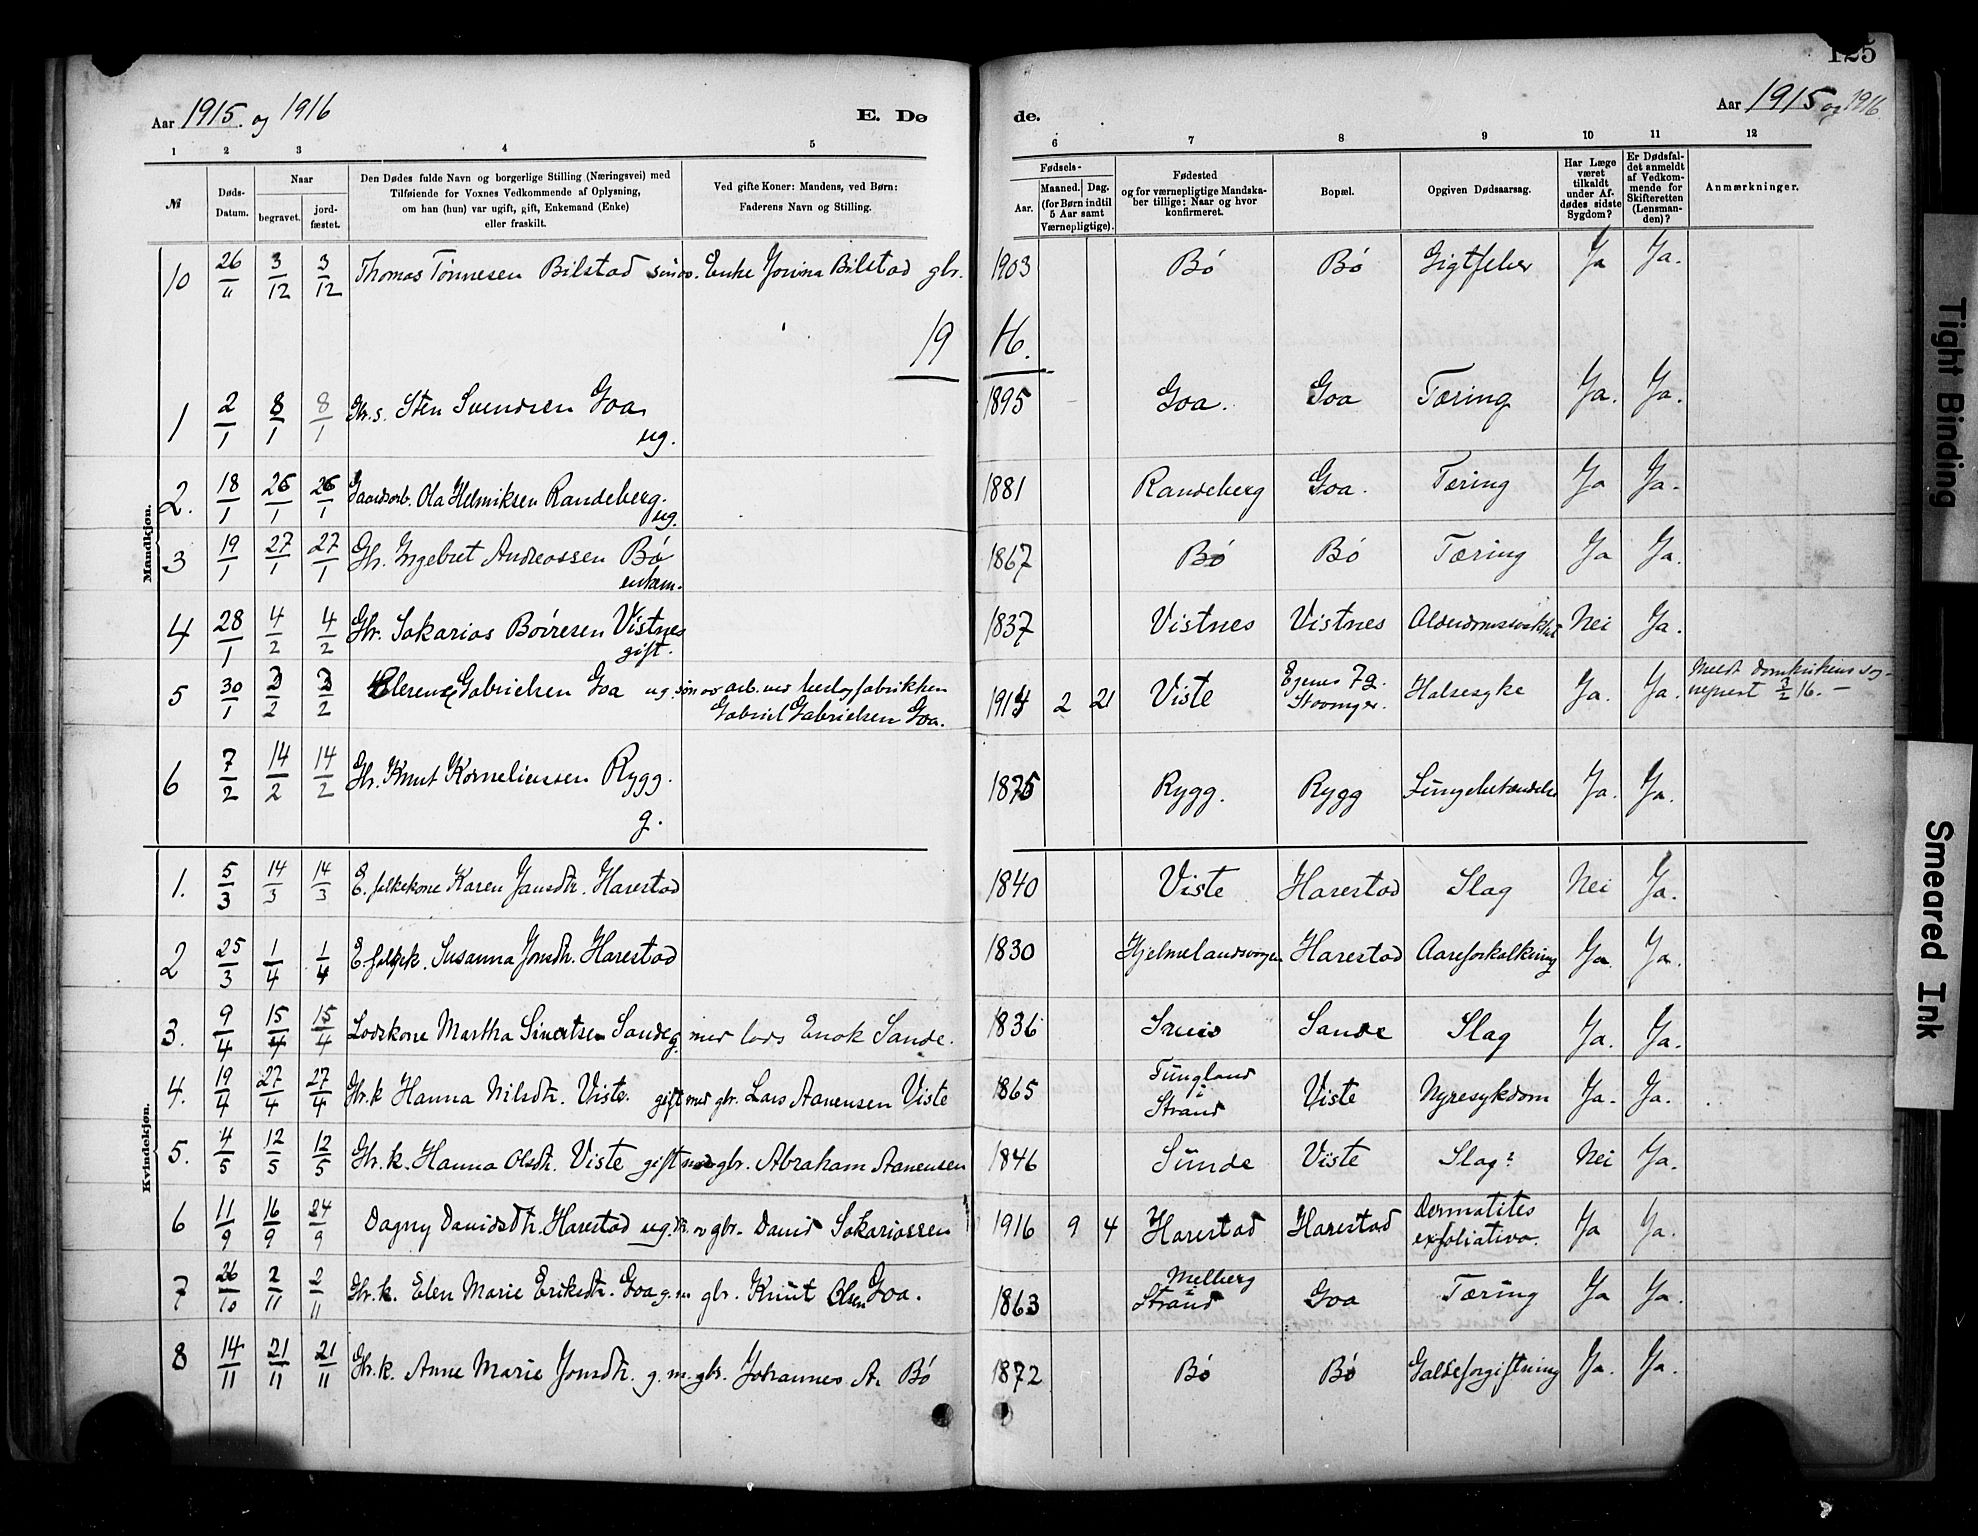 125
Aar 1915. og 1916
E. Dø
de.
Aar 1915 og 1916
1 2 3 4 5 6 7 8 9 10 11 12
№
Døds-
Datum.
Naar
begravet.
jord-
fæstet.
Den Dødes fulde Navn og borgerlige Stilling (Næringsvei) med
Tilføiende for Voxnes Vedkommende af Oplysning,
om han (hun) var ugift, gift, Enkemand (Enke)
eller fraskilt.
Ved gifte Koner: Mandens, ved Børn:
Faderens Navn og Stilling.
Fødsels-
Aar.
Maaned. Dag.
(for Børn indtil
5 Aar samt
Værnepligtige).
Fødested
og for værnepligtige Mandska-
ber tillige: Naar og hvor
konfirmeret.
Bopæl.
Opgiven Dødsaarsag.
Har Læge
været
tilkaldt
under Af-
dødes sidste
Sygdom?
Er Dødsfal-
det anmeldt
af Vedkom-
mende for
Skifteretten
(Lensman-
den)?
Anmærkninger.
10 26/11 3/12 3/12 Thomas Tønnesen Bilstad søn av. Enke Jorina Bilstad gbr. 1903 Bö Bö Gigtfeber Ja Ja.
19 16.
Mandkjøn.
1 2/1 8/1 8/1 Gbr.s. Sten Svendsen Goa ug. 1895 Goa. Goa Tæring Ja. Ja.
2. 18/1 26/1 26/1 Gaardsarb. Ola Helmiksen Randeberg. ug. 1881 Randeberg Goa. Tæring Ja Ja.
3 19/1 27/1 27/1 Gbr. Ingebret Andreassen Bö enkem. 1867 Bö Bö Tæring Ja Ja.
4 28/1 4/2 4/2 Gbr. Sakarias Børresen Vistnes gift. 1837 Vistnes Vistnes Alderdomssvakhet Nei Ja.
5 30/1 3/2 3/2 Clerence Gabrielsen Goa ug. søn av arb. ved fabrikken
Gabriel Gabrielsen Goa. 1914 2 21 Viste Egenes 7 g. Stavanger. Halsesyke Ja. Ja. Meldt domkirkens sog-
neprest 3/2 16. —
6 7/2 14/2 14/2 Gbr. Knut Korneliussen Rygg. g. 1875 Rygg. Rygg Lungebetændelse Ja. Ja.
Kvindekjøn.
1. 5/3 14/3 14/3 E. folkekone Karen Jansdtr. Harestad 1840 Viste Harestad Slag Nei Ja.
2 25/3 1/4 1/4 E. Susanna Jonsdtr. Harestad 1830 Harestad Aareforkalkning Ja. Ja.
3. 9/4 15/4 15/4 Loskone Martha Sivertsen Sande g. med lods Enok Sande. 1836 Sande Slag Ja. Ja.
4. 19/4 27/4 27/4 Gbr.k Hanna Nilsdtr. Viste. gift med gbr. Lars Aanensen Viste 1865 Tungland i Strand Viste Nyresykdom Ja. Ja.
5. 4/5 12/5 12/5 Gbr.k. Hanna Olsdtr. Viste gift med gbr. Abraham Aanensen 1846 Sunde Viste Slag? Nei Ja.
6 11/9 16/9 24/9 Dagny Davidsdtr. Harestad ug. dtr. av gbr. David Sakariassen 1916 9 4 Harestad Harestad Dermatites exfoliativa. Ja Ja.
7 26/10 2/11 2/11 Gbr.k. Elen Marie Eriksdtr. Goa g. m gbr. Knut Olsen Goa. 1863 Melberg i Strand Goa Tæring Ja Ja.
8 14/11 21/11 21/11 Gbr.k. Anne Marie Jonsdtr. g. m. gbr. Johannes A. Bö 1872 Bö Bö Galdeforgiftning Ja. Ja.
Tight Binding
Smeared Ink